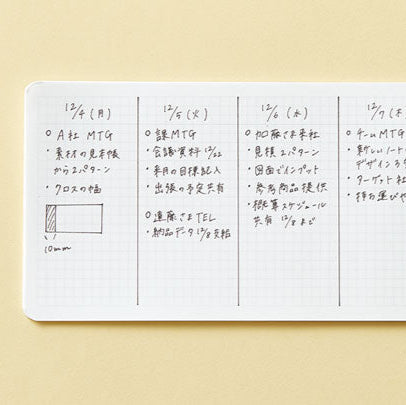 12/4 (月)
○ A社 MTG
・素材の見本帳
から2パターン
・クロスの幅
10mm
12/5 (火)
○ 課MTG
・会議資料 12/22
・来月の目標記入
・出張の予定共有
○ 遠藤さまTEL
・納品データ 12/8支給
12/6 (水)
○ 加藤さま来社
・見積 2パターン
・図面でインプット
・参考商品提供
・概算スケジュール
共有 12/8まで
12/7 (木
○ チームMTG
・新しいノート
デザイン
・ターゲット社
・持ち運びや